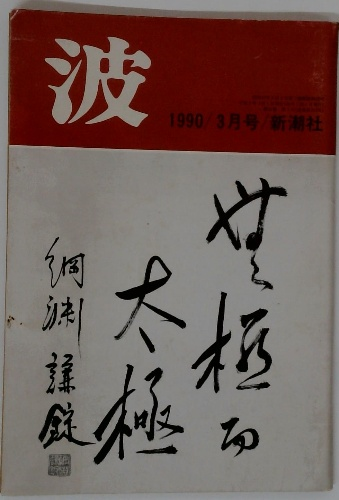 波
1990/3月号/新潮社
無極而
太極
綱淵謙錠